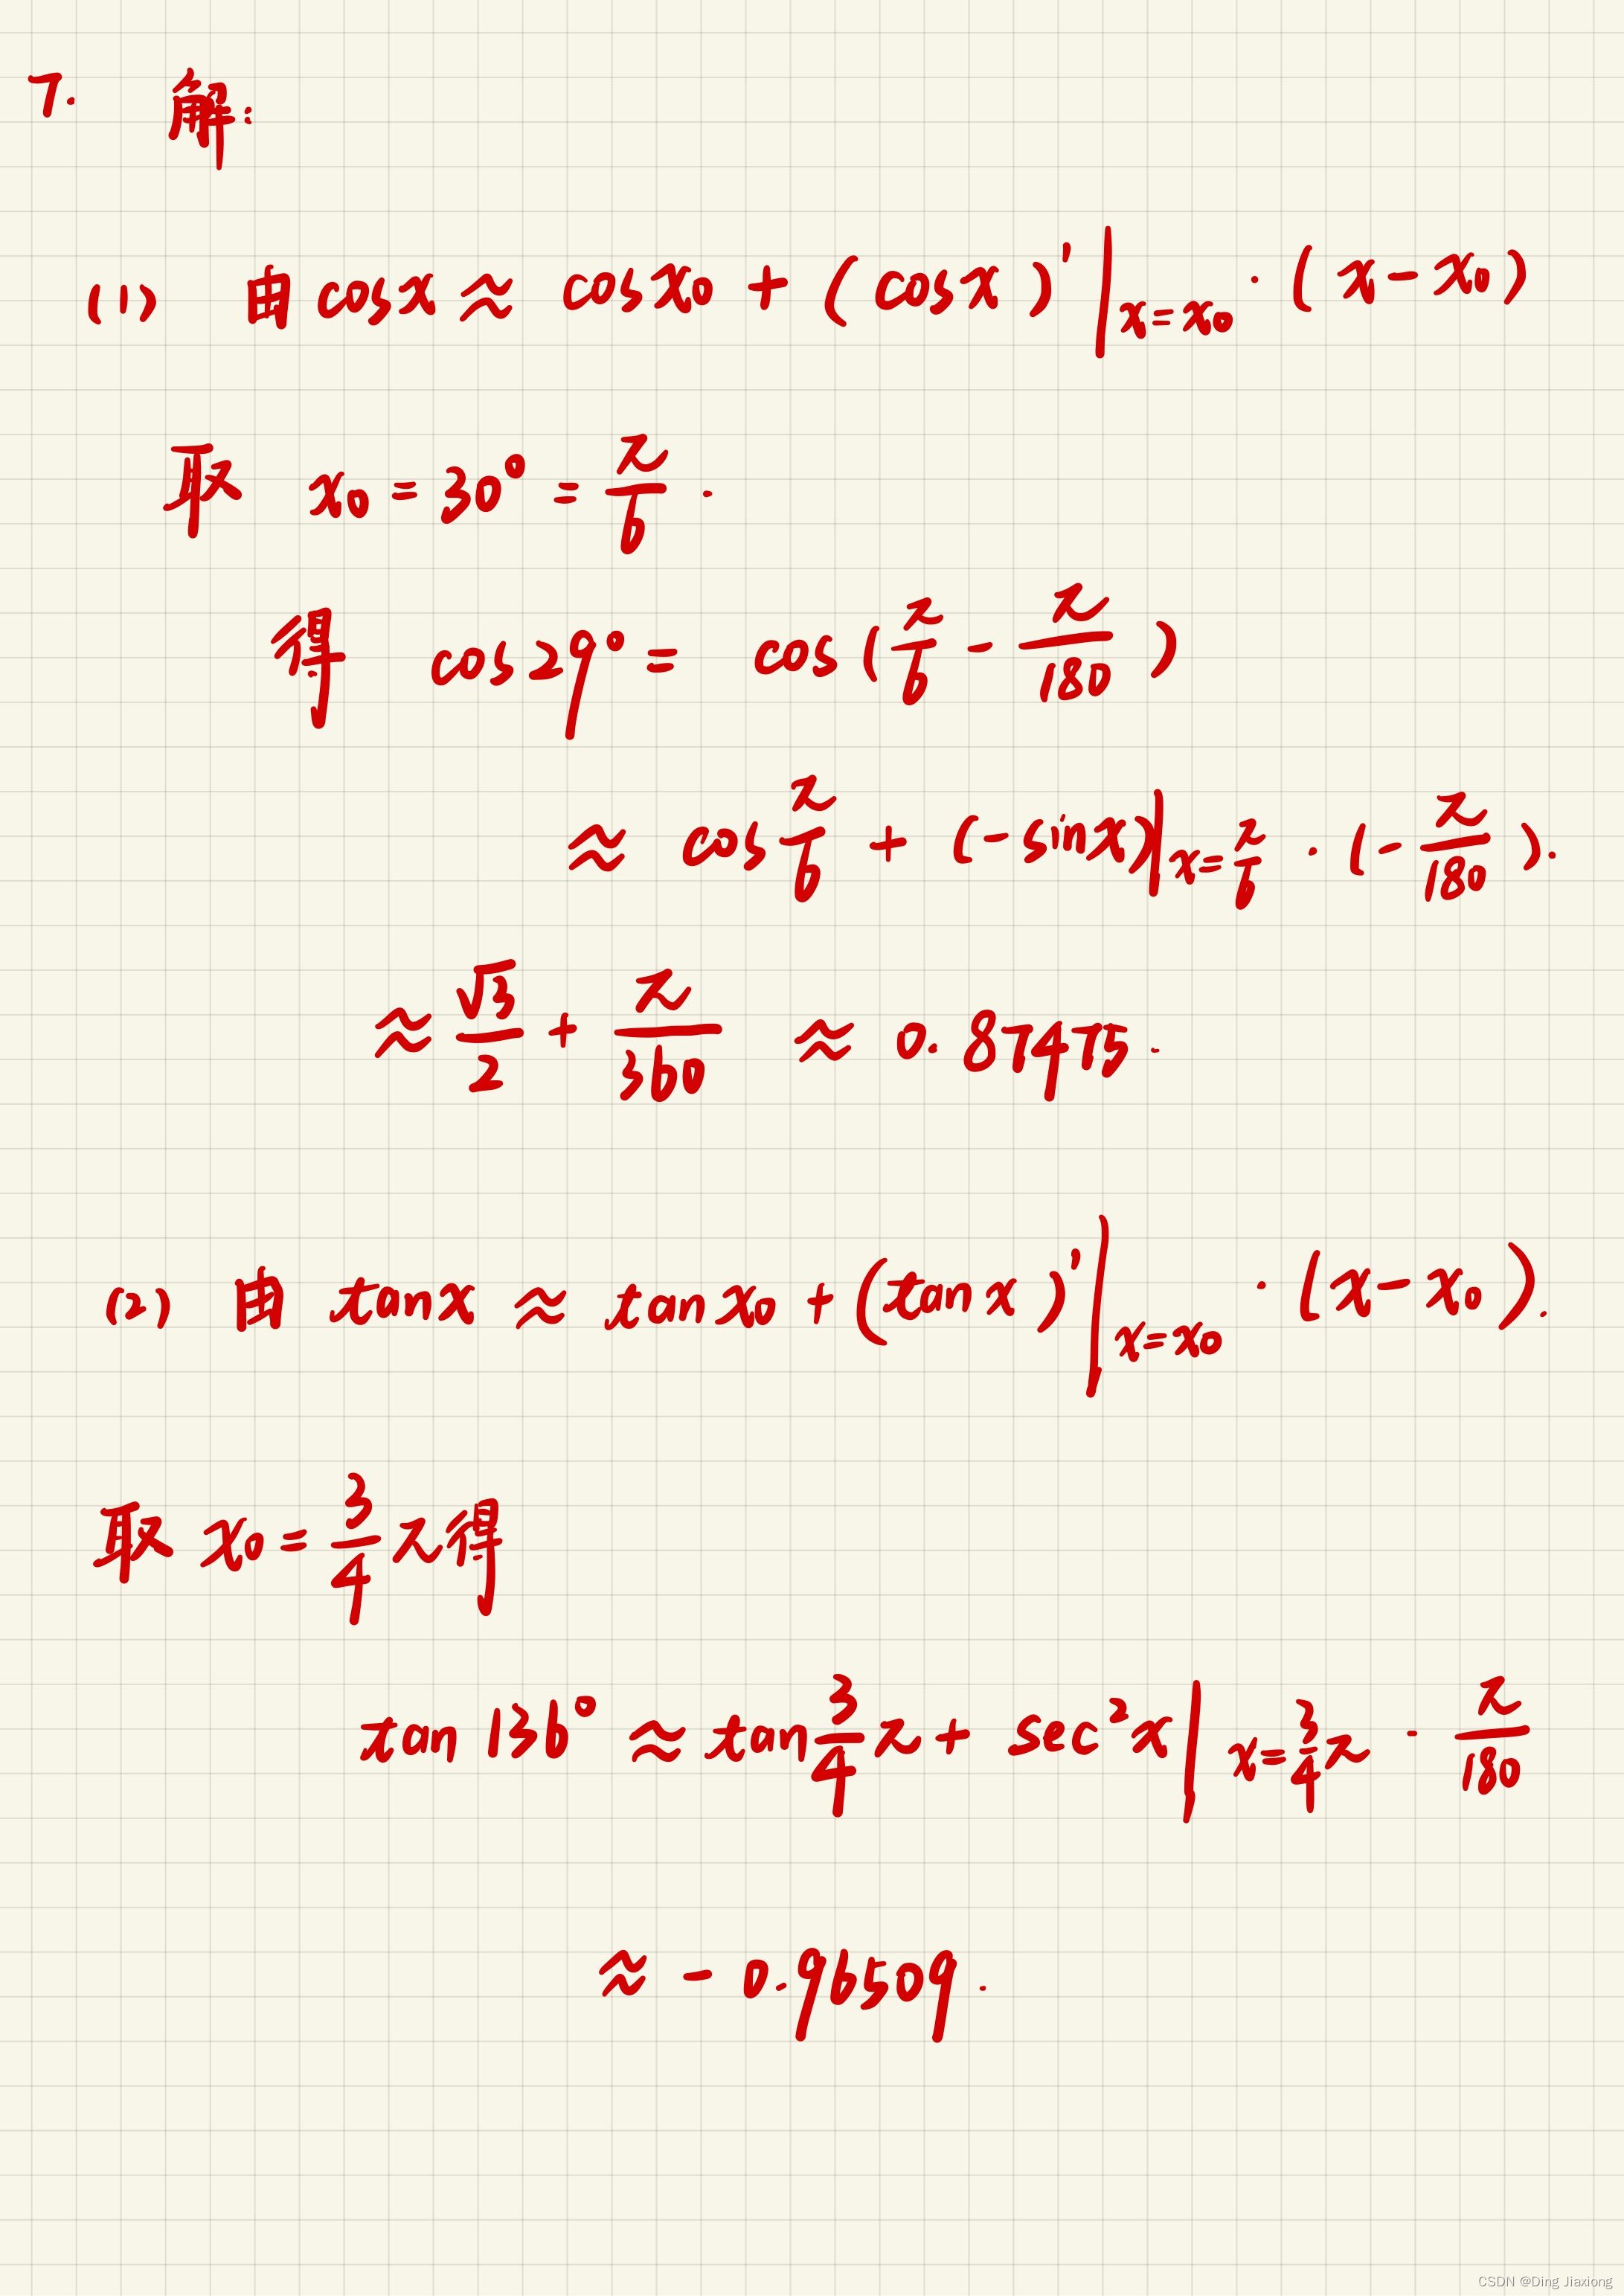 7. 解:
(1) 由 cosx ≈ cosx₀ + (cosx)'|ₓ₌ₓ₀ · (x - x₀)
取 x₀ = 30° = π/6 .
得 cos29° = cos(π/6 - π/180)
≈ cos π/6 + (-sinx)|x=π/6 · (-π/180).
≈ √3/2 + π/360 ≈ 0.87475.
(2) 由 tanx ≈ tanx₀ + (tanx)'|x=x₀ · (x - x₀).
取 x₀ = 3/4 π 得
tan136° ≈ tan 3/4 π + sec²x|x=3/4 π · π/180
≈ -0.96509.
CSDN @Ding Jiaxiong